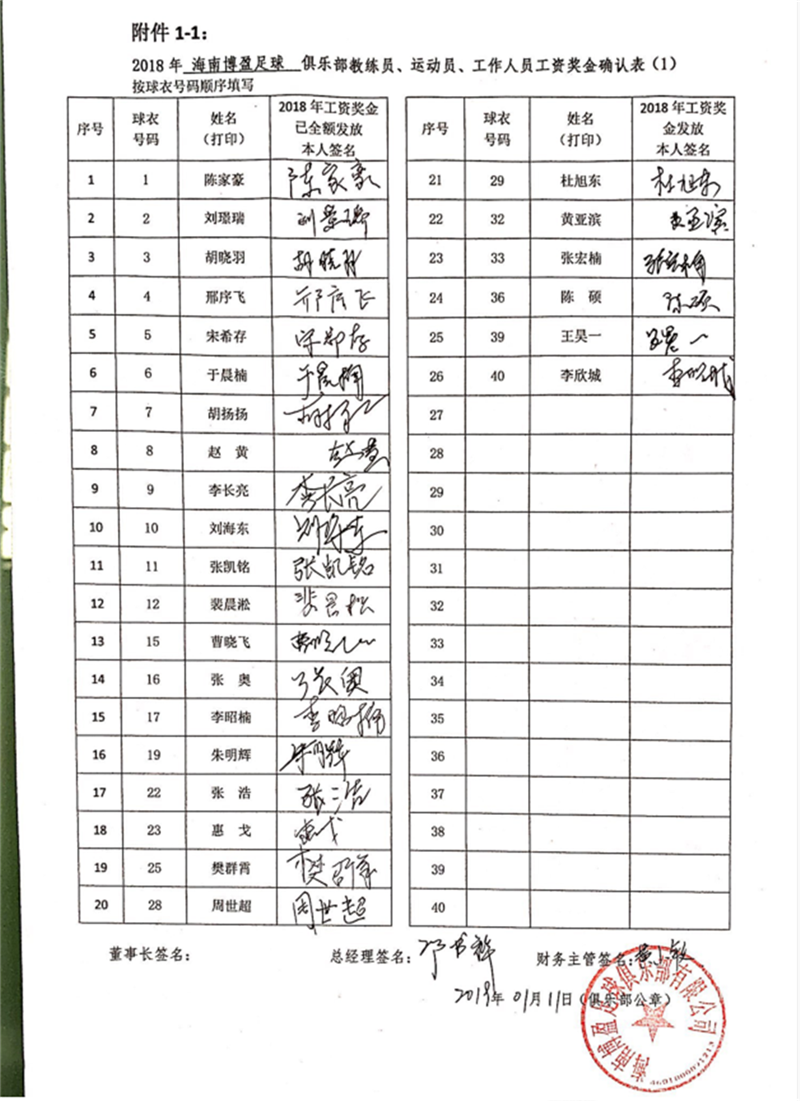 附件 1-1：
2018 年 海南博盈足球 俱乐部教练员、运动员、工作人员工资奖金确认表（1）
按球衣号码顺序填写
序号 球衣号码 姓名（打印） 2018 年工资奖金已全额发放本人签名
1 1 陈家豪 陈家豪
2 2 刘璟瑞 刘璟瑞
3 3 胡晓羽 胡晓羽
4 4 邢序飞 邢序飞
5 5 宋希存 宋希存
6 6 于晨楠 于晨楠
7 7 胡扬扬
8 8 赵 黄 赵黄
9 9 李长亮 李长亮
10 10 刘海东 刘海东
11 11 张凯铭 张凯铭
12 12 裴晨淞 裴晨淞
13 15 曹晓飞 曹晓飞
14 16 张 奥 张奥
15 17 李昭楠 李昭楠
16 19 朱明辉 朱明辉
17 22 张 浩 张浩
18 23 惠 戈 惠戈
19 25 樊群霄 樊群霄
20 28 周世超 周世超
序号 球衣号码 姓名（打印） 2018 年工资奖金发放本人签名
21 29 杜旭东 杜旭东
22 32 黄亚滨 黄亚滨
23 33 张宏楠 张宏楠
24 36 陈 硕 陈硕
25 39 王昊一 王昊一
26 40 李欣城 李欣城
27
28
29
30
31
32
33
34
35
36
37
38
39
40
董事长签名： 总经理签名： 财务主管签名：
2019年 01月11日（俱乐部公章）
海南博盈足球俱乐部有限公司